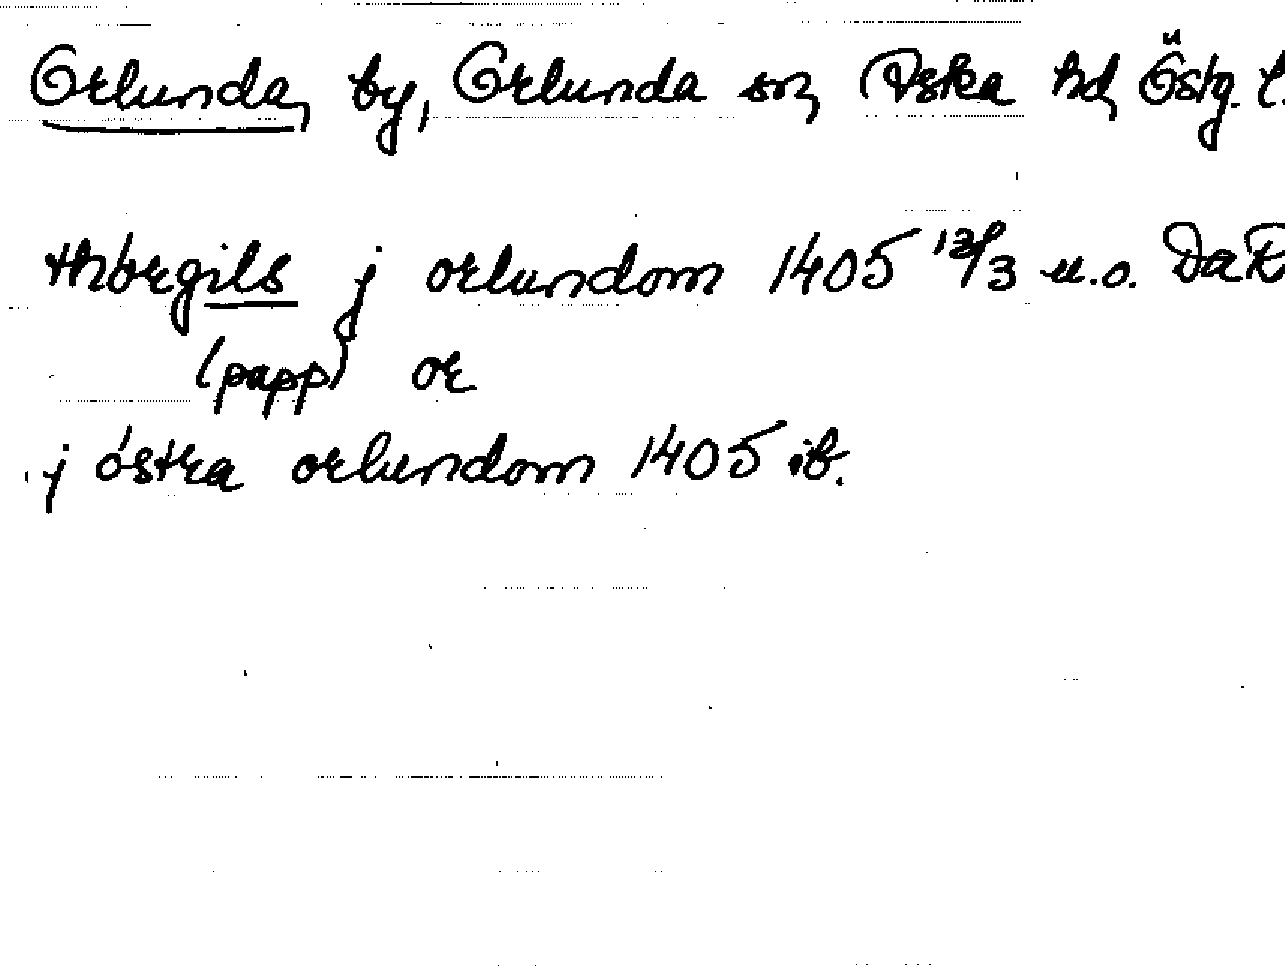 Orlunda, by, Orlunda sn, Aska hd, Östg. l.
thorgils j orlundom 1405 13/3 u.o. DaR
(papp) or
j östra orlundom 1405 ib.